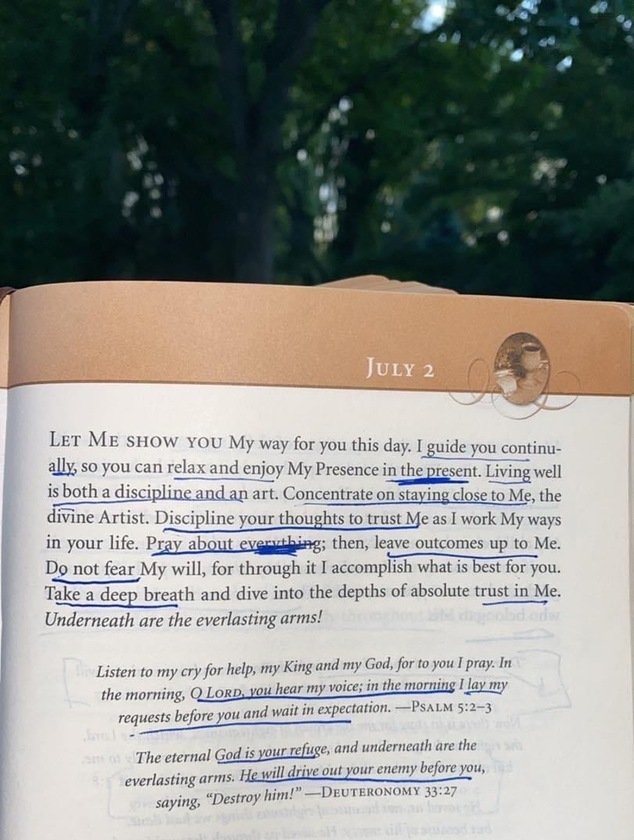 JULY 2
LET ME SHOW YOU My way for you this day. I guide you continu-
ally, so you can relax and enjoy My Presence in the present. Living well
is both a discipline and an art. Concentrate on staying close to Me, the
divine Artist. Discipline your thoughts to trust Me as I work My ways
in your life. Pray about everything; then, leave outcomes up to Me.
Do not fear My will, for through it I accomplish what is best for you.
Take a deep breath and dive into the depths of absolute trust in Me.
Underneath are the everlasting arms!
Listen to my cry for help, my King and my God, for to you I pray. In
the morning, O LORD, you hear my voice; in the morning I lay my
requests before you and wait in expectation. —PSALM 5:2–3
The eternal God is your refuge, and underneath are the
everlasting arms. He will drive out your enemy before you,
saying, "Destroy him!" —DEUTERONOMY 33:27